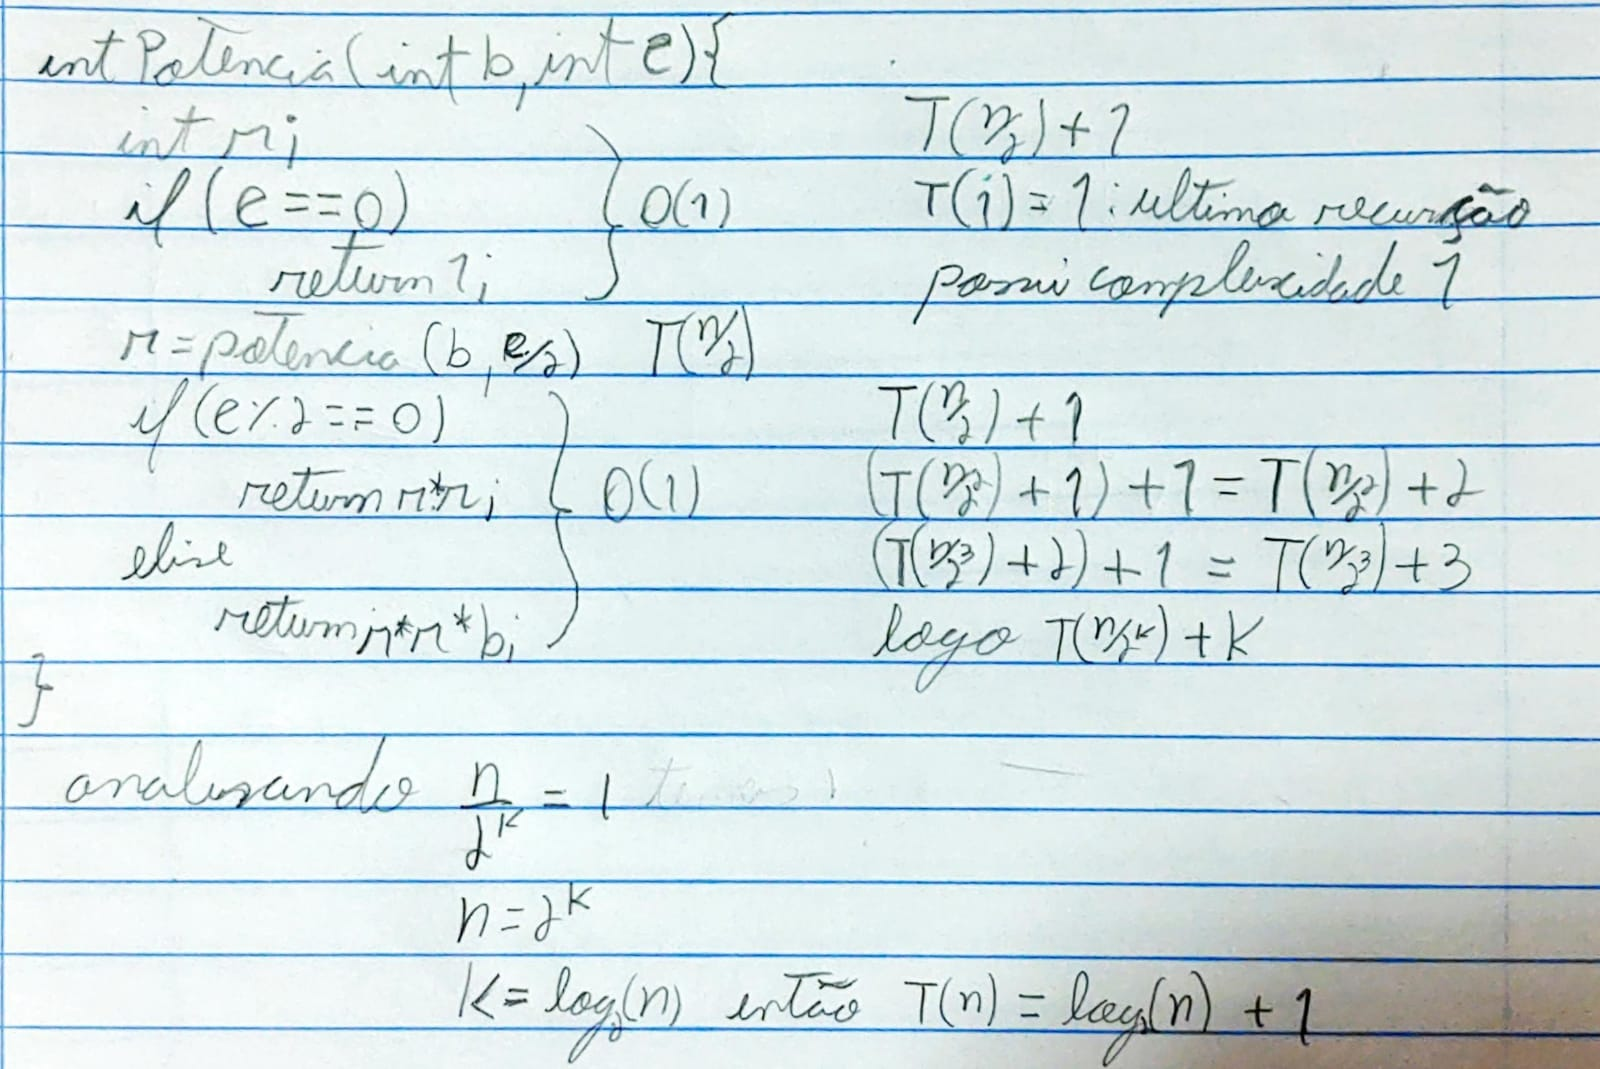 int Potencia(int b, int e){
int r;
if(e==0)
return 1;
} O(1)
r=potencia(b, e/2) T(n/2)
if(e%2==0)
return r*r;
else
return r*r*b;
} O(1)
}
T(n/2)+1
T(1)=1: ultima recursão
possui complexidade 1
T(n/2)+1
(T(n/2²)+1)+1=T(n/2²)+2
(T(n/2³)+2)+1=T(n/2³)+3
logo T(n/2^k)+K
analisando n/2^k = 1
n=2^k
K=log₂(n) então T(n)=log₂(n)+1